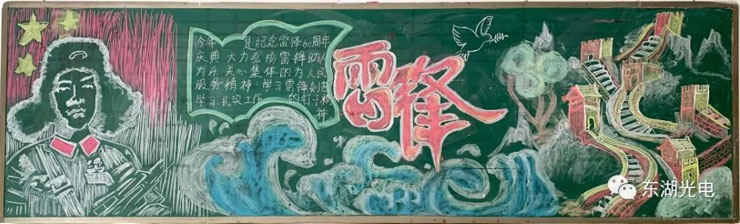 今年 是纪念雷锋60周年
庆典 大力弘扬雷锋助人
为乐 关心集体的为人民
服务精神 学习雷锋刻苦
学习 扎实工作 的钉子精
神
雷锋
东湖光电